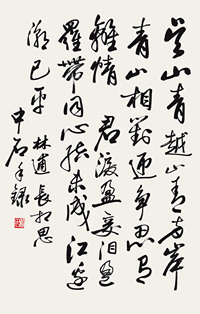 吴山青越山青两岸
青山相對迎争忍有
離情 君淚盈妾泪盈
羅帶同心結未成江邊
潮已平
林逋長相思
中石手録